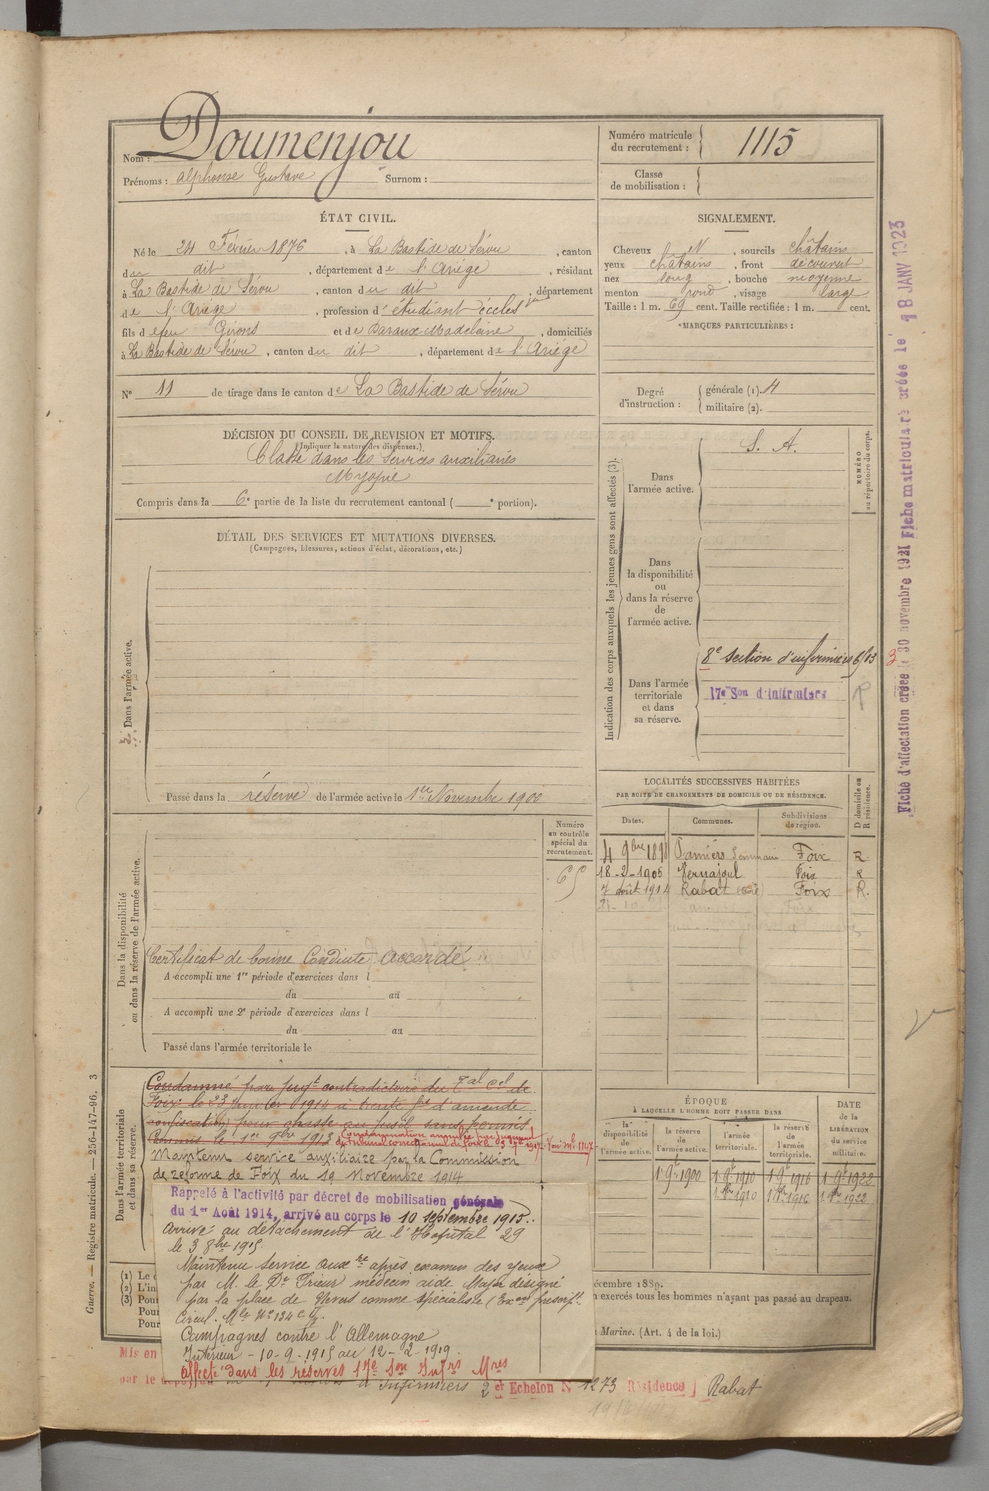 Nom : Doumenjou
Prénoms : Alphonse Gustave Surnom :
Numéro matricule du recrutement : 1115
Classe de mobilisation :
ÉTAT CIVIL.
Né le 24 Février 1876, à La Bastide de Sérou, canton
du dit, département de l'Ariège, résidant
à La Bastide de Sérou, canton du dit, département
de l'Ariège, profession d'étudiant eccles
fils de feu Girons et de Paraux Madeleine, domiciliés
à La Bastide de Sérou, canton du dit, département de l'Ariège
N° 11 de tirage dans le canton de La Bastide de Sérou
SIGNALEMENT.
Cheveux N, sourcils châtains
yeux châtains, front découvert
nez long, bouche moyenne
menton rond, visage large
Taille : 1 m. 69 cent. Taille rectifiée : 1 m. cent.
*MARQUES PARTICULIÈRES :
Degré d'instruction : générale (1). 4
militaire (2).
DÉCISION DU CONSEIL DE REVISION ET MOTIFS.
(Indiquer la nature des dispenses.)
Classé dans les Services auxiliaires
Myopie
Compris dans la 6e partie de la liste du recrutement cantonal ( e portion).
DÉTAIL DES SERVICES ET MUTATIONS DIVERSES.
(Campagnes, blessures, actions d'éclat, décorations, etc.)
Dans l'armée active.
Passé dans la réserve de l'armée active le 1er Novembre 1900
Indication des corps auxquels les jeunes gens sont affectés (3).
Dans l'armée active.
S. A.
NUMÉRO au répertoire du corps.
Dans la disponibilité ou dans la réserve de l'armée active.
Dans l'armée territoriale et dans sa réserve.
8e section d'infirmiers
17e Son d'Infirmiers
LOCALITÉS SUCCESSIVES HABITÉES
PAR SUITE DE CHANGEMENTS DE DOMICILE OU DE RÉSIDENCE.
Dates. Communes. Subdivisions de région. D domicile ou R résidence.
Pamiers Foix R
18-2-1906 Vernajoul Foix R
7 août 1914 Rabat Foix R.
Numéro au contrôle spécial du recrutement.
65
Dans la disponibilité ou dans la réserve de l'armée active.
Certificat de bonne Conduite accordé
A accompli une 1re période d'exercices dans l
du au
A accompli une 2e période d'exercices dans l
du au
Passé dans l'armée territoriale le
Dans l'armée territoriale et dans sa réserve.
Condamné par jugt contradictoire du
Foix le 23 Janvier 1914 à trente frs d'amende
pour chasse au fusil sans permis
Commis le 1er 9bre 1913
Maintenu service auxiliaire par la Commission
de réforme de Foix du 19 Novembre 1914
Rappelé à l'activité par décret de mobilisation générale
du 1er Août 1914, arrivé au corps le 10 septembre 1915.
Arrivé au détachement de l'Hopital 29
le 3 8bre 1915
Maintenu Service auxre après examen des yeux
par M. le Dr Prieur médecin aide Major désigné
par la place de Nevers comme spécialiste
Circul. Mle N° 134 C.
Campagnes contre l'Allemagne
Intérieur - 10-9-1915 au 12-2-1919
Affecté dans les réserves 17e Son Infrs Mres
ÉPOQUE
À LAQUELLE L'HOMME DOIT PASSER DANS
la disponibilité de l'armée active. la réserve de l'armée active. l'armée territoriale. la réserve de l'armée territoriale.
DATE de la LIBÉRATION du service militaire.
1 9e 1900 1 9e 1910 1 9e 1916 1 9e 1922
1910 1916 1922
(1) Le d
(2) L'in
(3) Pour
Pour
Pour
écembre 1889.
n exercés tous les hommes n'ayant pas passé au drapeau.
Marine. (Art. 4 de la loi.)
Mis en
d'Infirmiers 2 et Echelon N° 1273 Résidence Rabat
Guerre. — Registre matricule. — 256-147-96. 3
Fiche d'affectation créée le 30 novembre 1921 Fiche matricule créée le 8 JANV 1923